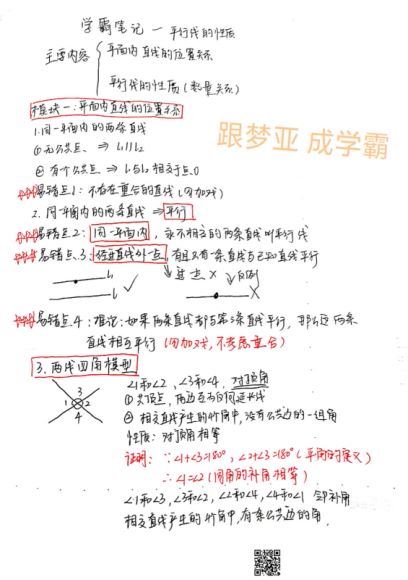 学霸笔记一平行线的性质
主要内容 平面内直线的位置关系
平行线的性质(数量关系)
模块一:平面内直线的位置关系
跟梦亚 成学霸
1.同一平面内的两条直线
①无公共点 ⇒ l₁∥l₂
②有个公共点 ⇒ l₁与l₂相交于点O
易错点1:不存在重合的直线
2.同一平面内的两条直线 ⇒ 平行
易错点2:同一平面内,永不相交的两条直线叫平行线
易错点3:经过直线外一点,有且只有一条直线与已知直线平行
过点 反例
易错点4:推论:如果两条直线都与第三条直线平行,那么这两条
直线相互平行(不考虑重合)
3.两线四角模型
∠1和∠2、∠3和∠4,对顶角
①公顶点,两边互为反向延长线
②相交直线产生的4个角中,没有公共边的一组角
性质:对顶角相等
证明:∵∠1+∠3=180°,∠2+∠3=180°(平角的定义)
∴∠1=∠2(同角的补角相等)
∠1和∠3、∠3和∠2、∠2和∠4、∠4和∠1 邻补角
相交直线产生的4个角中,有条公共边的角.